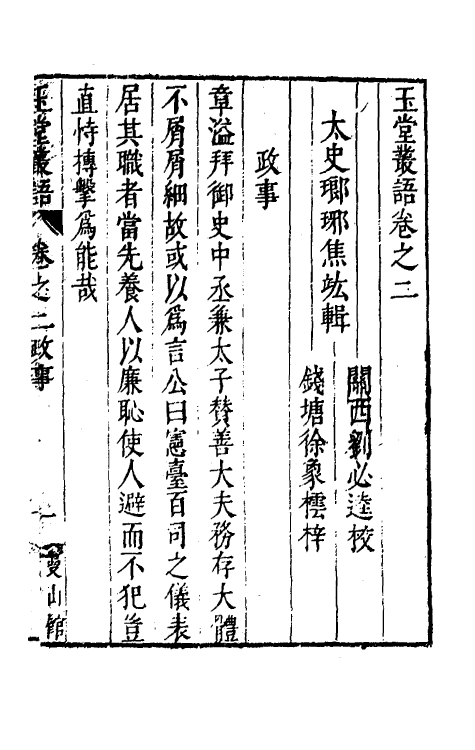 玉堂叢語卷之二
太史瑯琊焦竑輯
關西劉必達校
錢塘徐象橒梓
政事
章溢拜御史中丞兼太子賛善大夫務存大體
不屑屑細故或以為言公曰憲臺百司之儀表
居其職者當先養人以廉恥使人避而不犯豈
直恃摶擊爲能哉
玉堂叢語 卷之二政事 一 曼山館